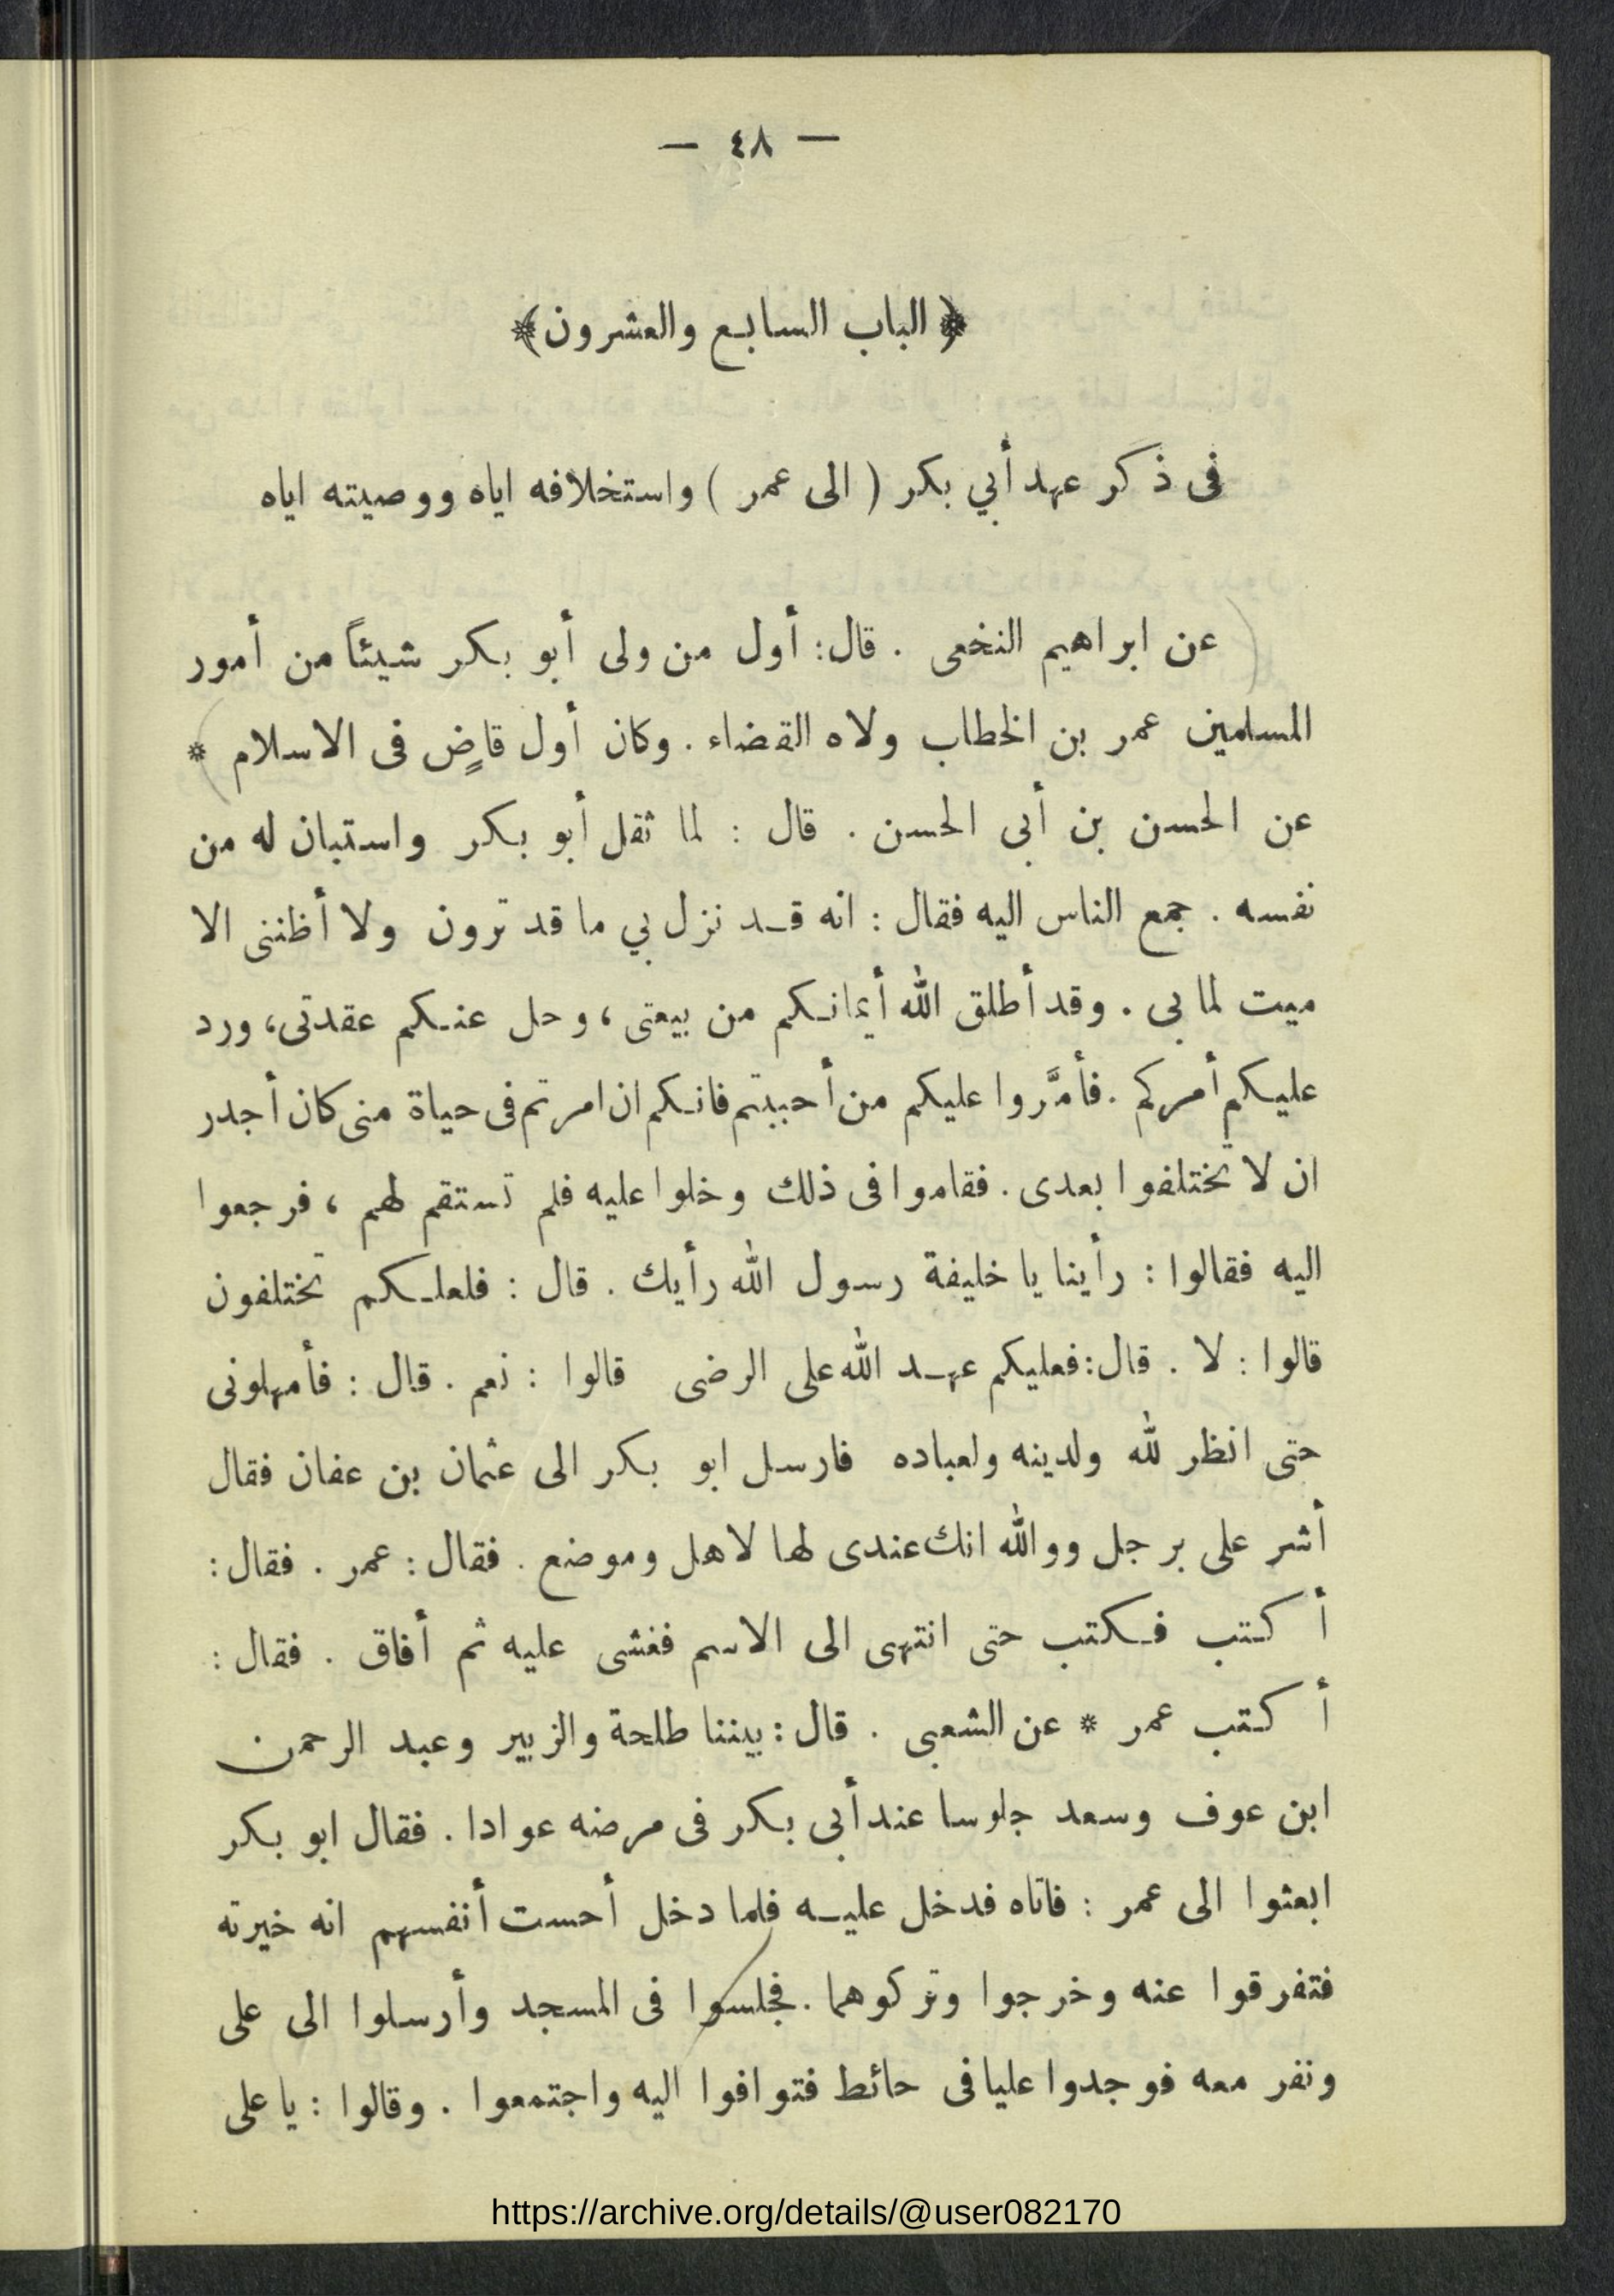 — ٤٨ —
﴿ الباب السابع والعشرون ﴾
فى ذكر عهد أبي بكر ( الى عمر ) واستخلافه اياه ووصيته اياه
عن ابراهيم النخعى . قال : أول من ولى أبو بكر شيئاً من أمور
المسلمين عمر بن الخطاب ولاه القضاء . وكان أول قاضٍ فى الاسلام *
عن الحسن بن أبى الحسن . قال : لما ثقل أبو بكر واستبان له من
نفسه . جمع الناس اليه فقال : انه قد نزل بي ما قد ترون ولا أظننى الا
ميت لما بى . وقد أطلق الله أيمانكم من بيعتى ، وحل عنكم عقدتى ، ورد
عليكم أمركم . فأمَّروا عليكم من أحببتم فانكم ان امرتم فى حياة منى كان أجدر
ان لا تختلفوا بعدى . فقاموا فى ذلك وخلوا عليه فلم تستقم لهم ، فرجعوا
اليه فقالوا : رأينا يا خليفة رسول الله رأيك . قال : فلعلكم تختلفون
قالوا : لا . قال : فعليكم عهد الله على الرضى قالوا : نعم . قال : فأمهلونى
حتى انظر لله ولدينه ولعباده فارسل ابو بكر الى عثمان بن عفان فقال
أشر على برجل ووالله انك عندى لها لاهل وموضع . فقال : عمر . فقال :
أكتب فكتب حتى انتهى الى الاسم فغشى عليه ثم أفاق . فقال :
أكتب عمر * عن الشعبى . قال : بيننا طلحة والزبير وعبد الرحمن
ابن عوف وسعد جلوسا عند أبى بكر فى مرضه عوادا . فقال ابو بكر
ابعثوا الى عمر : فاتاه فدخل عليه فلما دخل أحست أنفسهم انه خيرته
فتفرقوا عنه وخرجوا وتركوهما . فجلسوا فى المسجد وأرسلوا الى على
ونفر معه فوجدوا عليا فى حائط فتوافوا اليه واجتمعوا . وقالوا : يا على
https://archive.org/details/@user082170